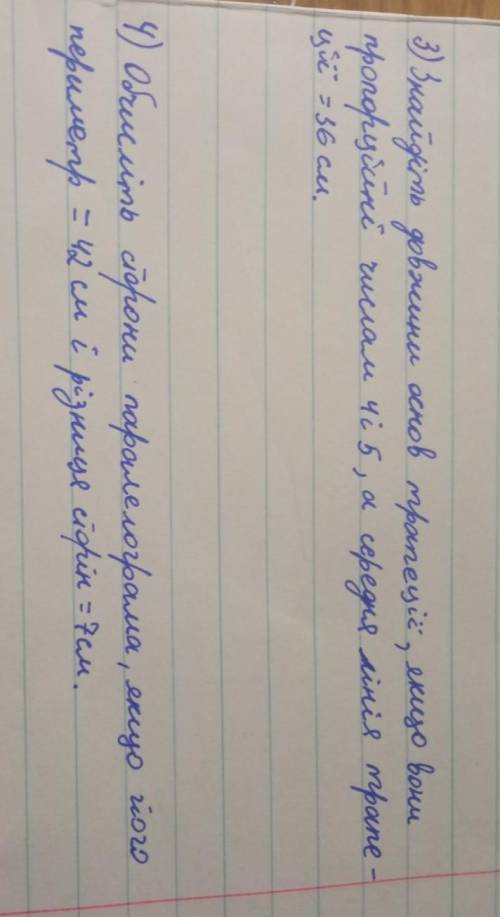 3) Знайдіть довжини основ трапеції, якщо вони
пропорційні числам 4 і 5, а середня лінія трапе-
ції = 36 см.
4) Обчисліть сторони паралелограма, якщо його
периметр = 42 см і різниця сторін = 7 см.